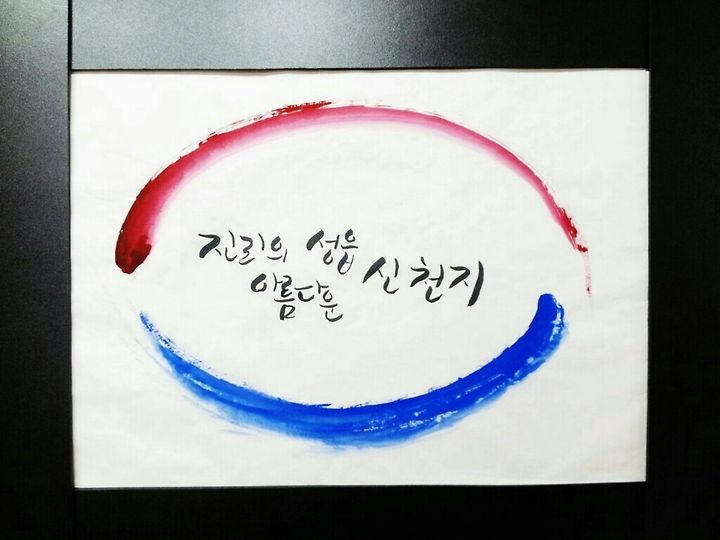 진리의 성읍
아름다운 신천지